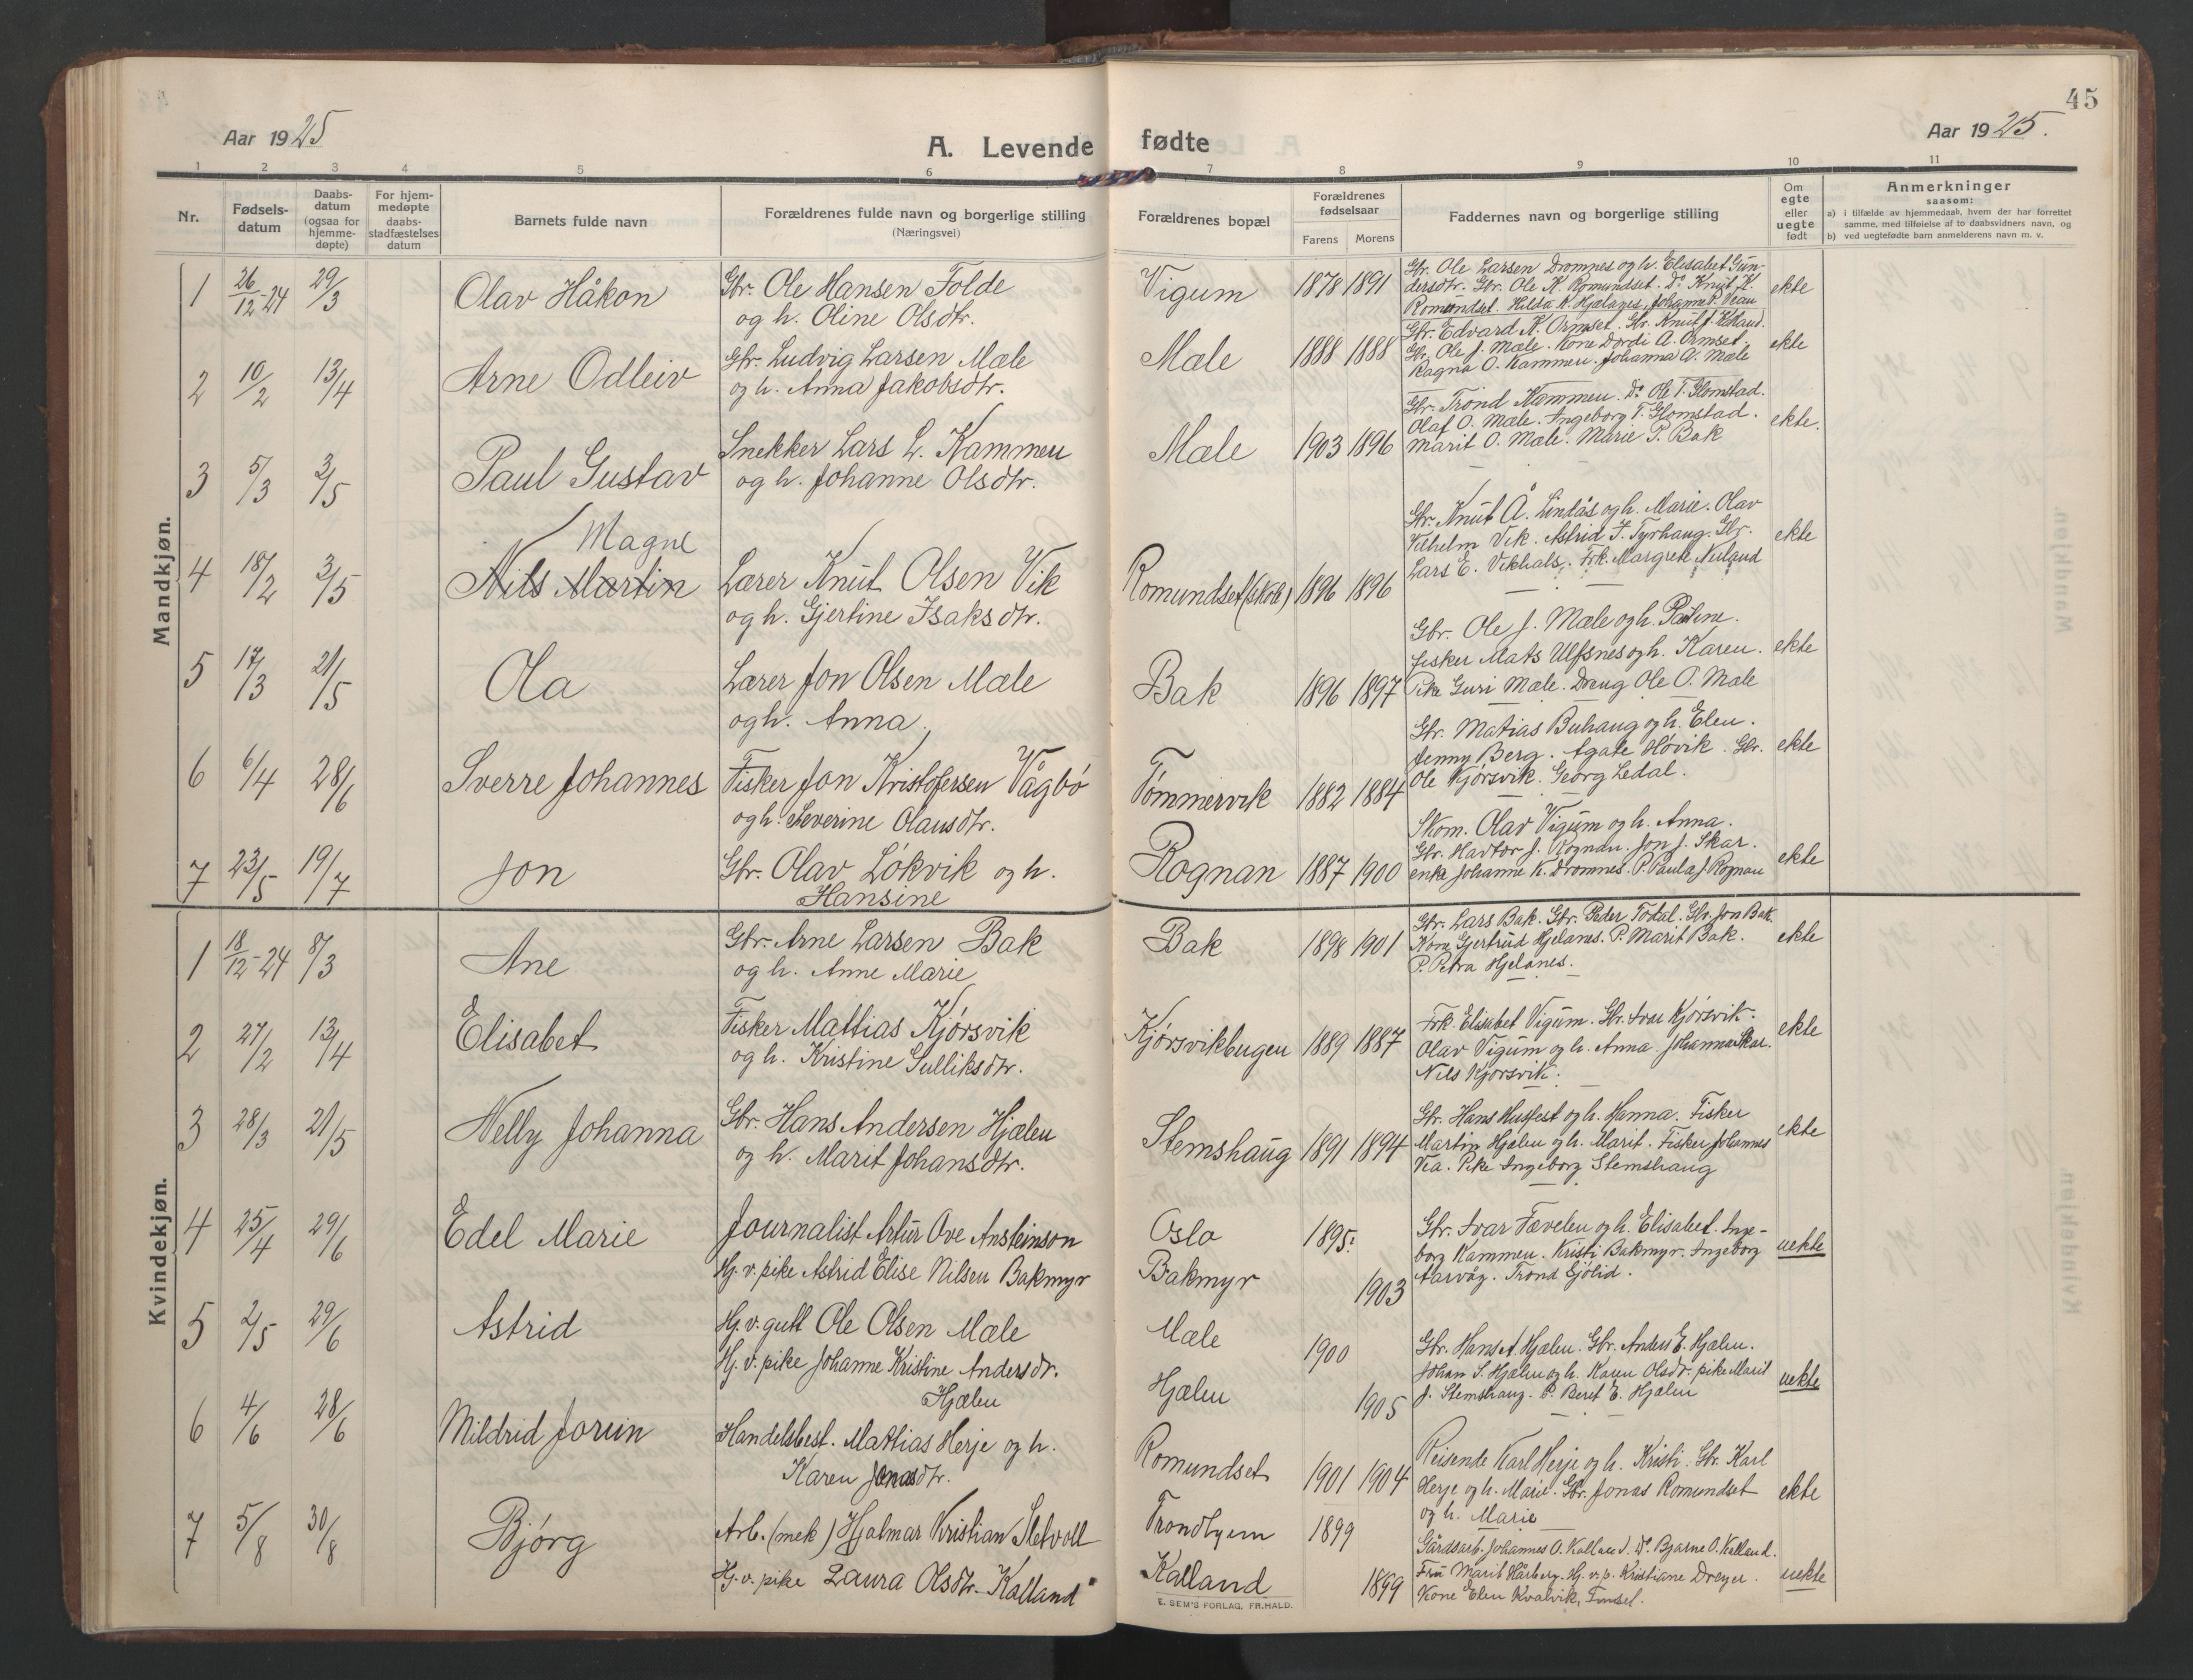 45
Aar 1925
A. Levende fødte
Aar 1925.
1 2 3 4 5 6 7 8 9 10 11
Nr.
Fødsels-
datum
Daabs-
datum
(ogsaa for
hjemme-
døpte)
For hjem-
medøpte
daabs-
stadfæstelses
datum
Barnets fulde navn
Forældrenes fulde navn og borgerlige stilling
(Næringsvei)
Forældrenes bopæl
Forældrenes
fødselsaar
Farens Morens
Faddernes navn og borgerlige stilling
Om
egte
eller
uegte
født
Anmerkninger
saasom:
a) i tilfælde av hjemmedaab, hvem der har forrettet
samme, med tilføielse af to daabsvidners navn, og
b) ved uegtefødte barn anmelderens navn m. v.
Mandkjøn.
1 26/12-24 29/3 Olav Håkon
Gbr. Ole Hansen Folde
og h. Oline Olsdtr.
Vigum 1878 1891
Gbr. Ole Larsen Dromnes og h. Elisabet Gun-
dersdtr. Gbr. Ole K. Romundset. Do Knut K.
Romundset. Hilda K. Hjelanes. Johanne P. Vean
ekte
2 10/2 13/4 Arne Odleiv
Gbr. Ludvig Larsen Mæle
og h. Anna Jakobsdtr.
Mæle 1888 1888
Gbr. Edvard K. Ormset. Gbr. Knut J.
Gbr. Ole J. Mæle. Kone Dordi A. Ormset.
Ragna O. Kammen. Johanna A. Mæle
ekte
3 5/3 3/5 Paul Gustav
Snekker Lars L. Kammen
og h. Johanne Olsdtr.
Mæle 1903 1896
Gbr. Trond Kammen. Do Ole T. Glomstad.
Olaf O. Mæle. Ingeborg T. Glomstad.
Marit O. Mæle. Marie P. Bak
ekte.
4 18/2 3/5 Magne
Nils Martin
Lærer Knut Olsen Vik
og h. Gjertine Isaksdtr.
Romundset (skole) 1896 1896
Gbr. Knut Å. Lindås og h. Marie. Olav
Vilhelm Vik. Astrid J. Tyrhaug. Gbr.
Lars E. Vikhals. Frk. Margrete Neiland
ekte
5 17/3 21/5 Ola
Lærer Jon Olsen Mæle
og h. Anna.
Bak 1896 1897
Gbr. Ole J. Mæle og h. Pauline.
Fisker Mats Ulfsnes og h. Karen.
Pike Guri Mæle. Dreng Ole O. Mæle
ekte
6 6/4 28/6 Sverre Johannes
Fisker Jon Kristofersen Vågbø
og h. Severine Olausdtr.
Tømmervik 1882 1884
Gbr. Matias Buhaug og h. Elen.
Jenny Berg. Agate Høvik. Gbr.
Ole Kjørsvik. Georg Ledal.
ekte
7 23/5 19/7 Jon
Gbr. Olav Løkvik og h.
Hansine
Rognan 1887 1900
Skom. Olav Vigum og h. Anna.
Gbr. Havtor J. Rognan. Jon J. Skar.
enke Johanne K. Dromnes. P. Paula J. Rognan
ekte
Kvindekjøn.
1 18/12-24 8/3 Ane
Gbr. Arne Larsen Bak
og h. Anne Marie
Bak 1898 1901
Gbr. Lars Bak. Gbr. Peder Todal. Gbr. Jon Bak.
Kone Gjertrud Hjelanes. P. Marit Bak.
P. Petra Hjelanes.
ekte
2 27/2 13/4 Elisabet
Fisker Mattias Kjørsvik
og h. Kristine Gulliksdtr.
Kjørsvikbugen 1889 1887
Frk. Elisabet Vigum. Gbr. Ivar Kjørsvik.
Olav Vigum og h. Anna. Johanna Skar.
Nils Kjørsvik.
ekte
3 28/3 21/5 Nelly Johanna
Gbr. Hans Andersen Hjælen
og h. Marit Johansdtr.
Stemshaug 1891 1894
Gbr. Hans Husfest og h. Hanna. Fisker
Martin Hjælen og h. Marit. Fisker Johannes
Vea. Pike Ingeborg Stemshaug
ekte
4 25/4 29/6 Edel Marie
Journalist Artur Ove Ansteinson
Hj. v. pike Astrid Elise Nilsen Bakmyr
Oslo 1895.
Bakmyr 1903
Gbr. Ivar Fævelen og h. Elisabet. Inge-
borg Kammen. Kristi Bakmyr. Ingeborg
Aarvåg. Trond Gjølid.
uekte
5 2/5 29/6 Astrid
Hj. v. gutt Ole Olsen Mæle
Hj. v. pike Johanne Kristine Andersdr.
Hjælen
Mæle 1900
Hjælen 1905
Gbr. Hans A. Hjælen. Gbr. Anders E. Hjælen.
Johan S. Hjælen og h. Karen Olsdr. pike Marit
J. Stemshaug. P. Beret E. Hjælen
uekte
6 4/6 28/6 Mildrid Jorun
Handelsbest. Mattias Herje og h.
Karen Jonasdtr.
Romundset 1901 1904
Reisende Karl Herje og h. Kristi. Gbr. Karl
Herje og h. Marie. Gbr. Jonas Romundset
og h. Marie
ekte
7 5/8 30/8 Bjørg
Arb. (mek) Hjalmar Kristian Sletvoll
Hj. v. pike Laura Olsdtr. Kalland
Trondhjem 1899
Kalland 1899
Gårdsarb. Johannes O. Kalland. Do Bjarne O. Kalland.
Fru Marit Hårberg. Hj. v. p. Kristiane Dreyer.
Kone Elen Kvalvik,
uekte
E. SEM'S FORLAG. FR.HALD.